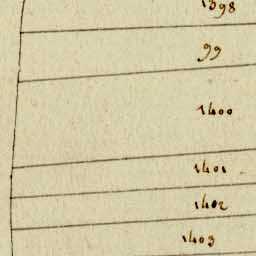 1398
99
1400
1401
1402
1403